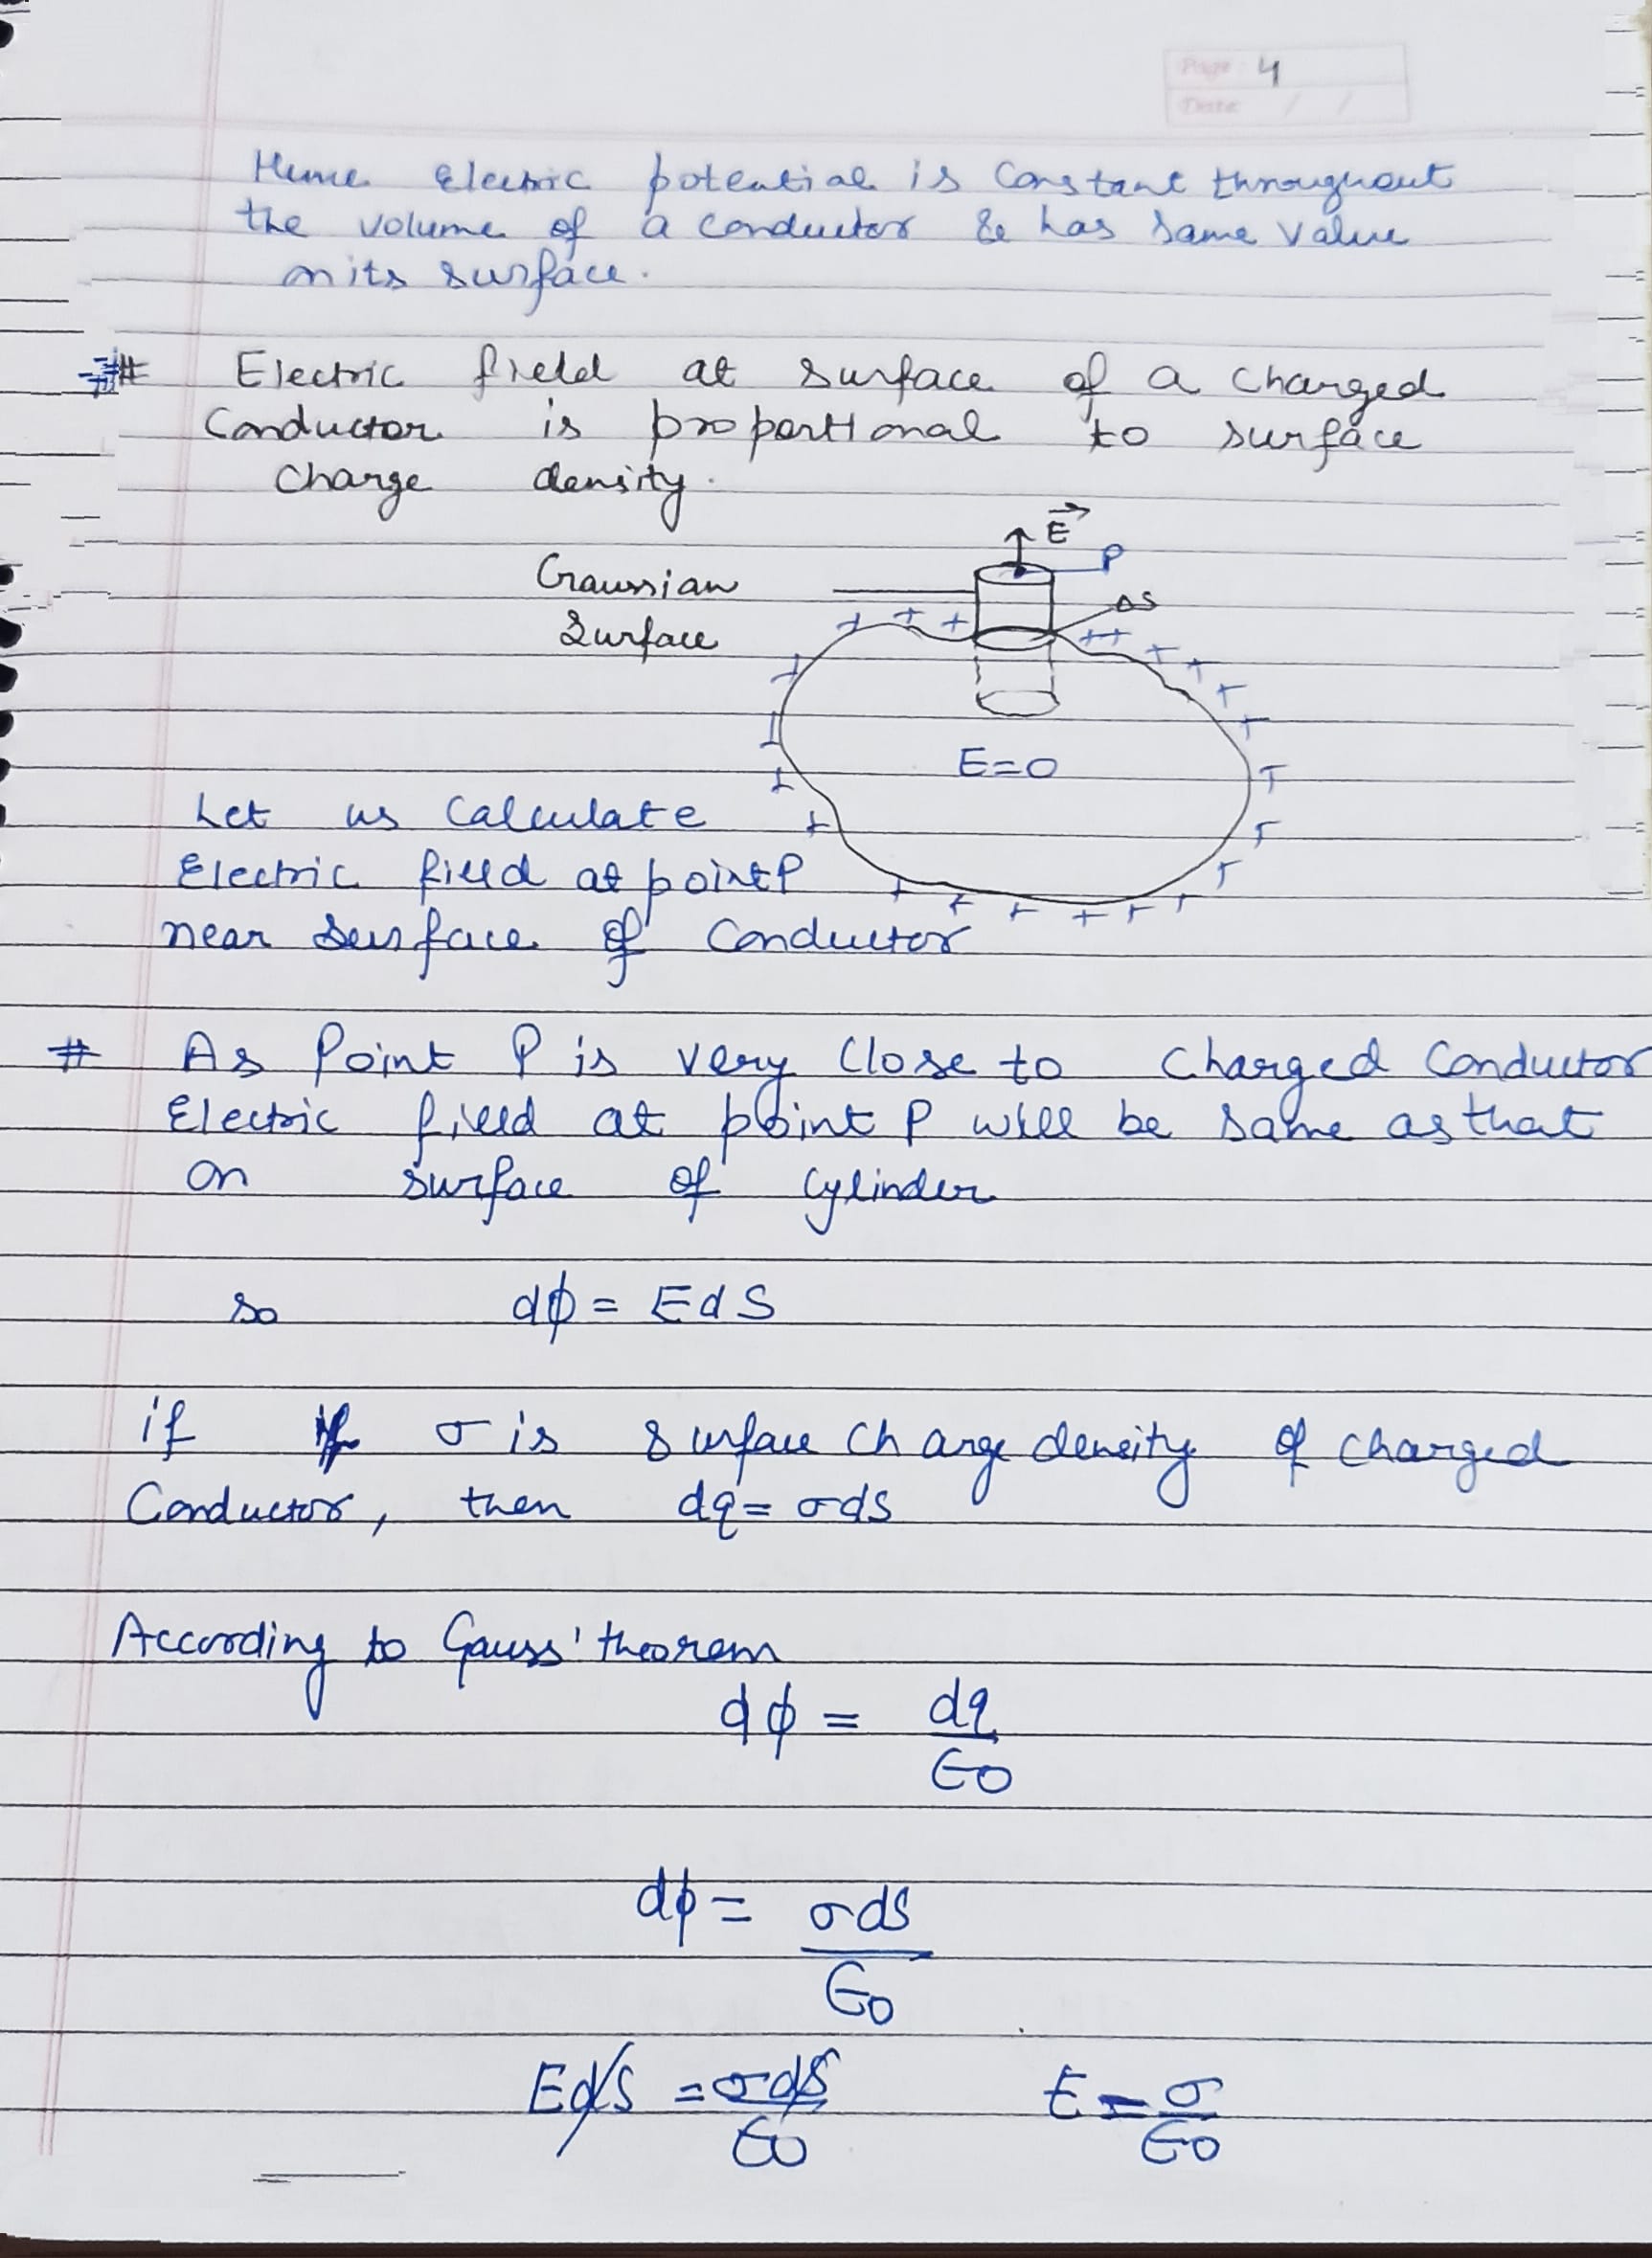 Page: 4
Date / /
Hence Electric potential is Constant throughout
the volume of a conductor & has same value
on its surface.
# Electric field at surface of a charged
Conductor is proportional to surface
charge density.
E
P
Gaussian
Surface
ΔS
+ + + + + + + + + + + + + + + + + + + + + + + +
E=0
Let us Calculate
Electric field at point P
near Surface of Conductor
# As Point P is very Close to Charged Conductor
Electric field at point P will be same as that
on surface of Cylinder
so dϕ = EdS
if σ is surface charge density of charged
Conductor, then dq = σdS
According to Gauss' theorem
dϕ = dq/ϵ0
dϕ = σdS/ϵ0
EdS = σdS/ϵ0 E = σ/ϵ0